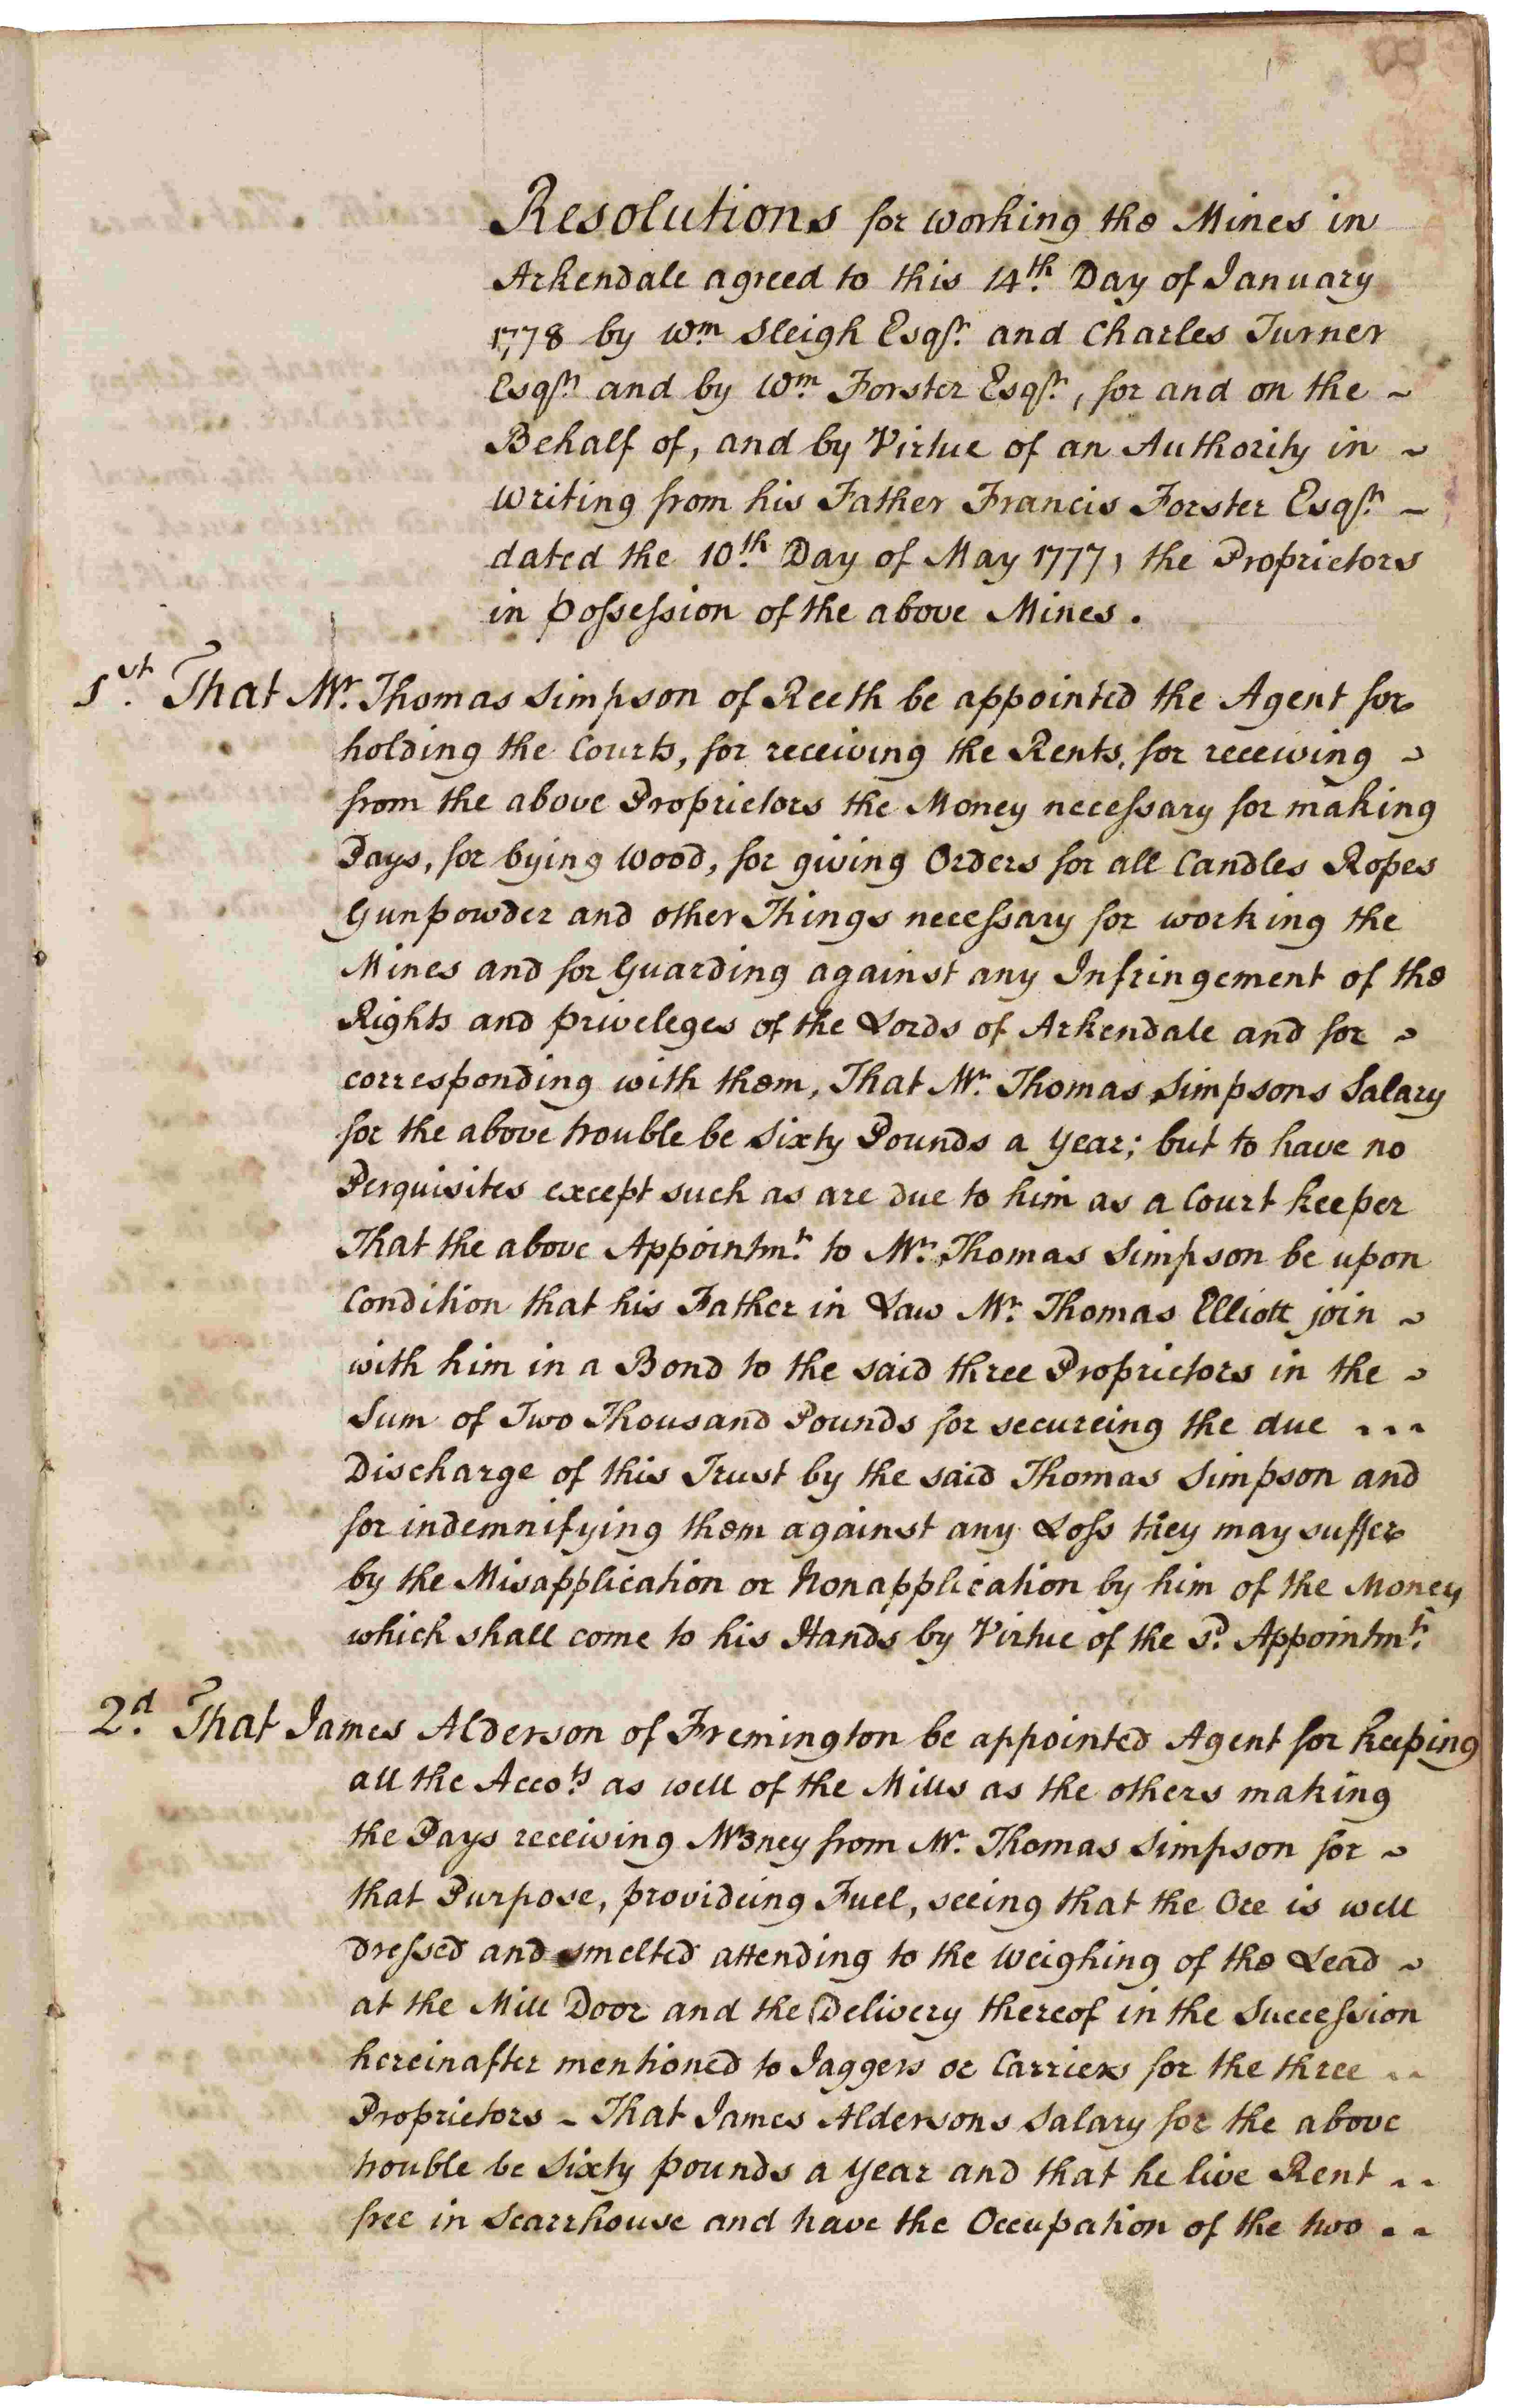 Resolutions for working the Mines in
Arkendale agreed to this 14th Day of January
1778 by Wm Sleigh Esqr. and Charles Turner
Esqr. and by Wm Forster Esqr., for and on the ~
Behalf of, and by Virtue of an Authority in ~
writing from his Father Francis Forster Esqr. ~
dated the 10th Day of May 1777, the Proprietors
in possession of the above Mines.
1st. That Mr. Thomas Simpson of Reeth be appointed the Agent for
holding the Courts, for receiving the Rents, for receiving ~
from the above Proprietors the Money necessary for making
Pays, for bying Wood, for giving Orders for all Candles Ropes
Gunpowder and other Things necessary for working the
Mines and for Guarding against any Infringement of the
Rights and priveleges of the Lords of Arkendale and for ~
corresponding with them, That Mr. Thomas Simpsons Salary
for the above trouble be Sixty Pounds a Year; but to have no
Perquisites except such as are due to him as a Court keeper
That the above Appointmt. to Mr. Thomas Simpson be upon
Condition that his Father in Law Mr. Thomas Elliott join ~
with him in a Bond to the said three Proprietors in the ~
Sum of Two Thousand Pounds for secureing the due ...
Discharge of this Trust by the said Thomas Simpson and
for indemnifying them against any Loss they may suffer
by the Misapplication or Nonapplication by him of the Money
which shall come to his Hands by Virtue of the sd. Appointmt.
2d. That James Alderson of Fremington be appointed Agent for keeping
all the Accots. as well of the Mills as the others making
the Pays receiving Money from Mr. Thomas Simpson for ~
that Purpose, provideing Fuel, seeing that the Ore is well
dressed and smelted attending to the Weighing of the Lead ~
at the Mill Door and the Delivery thereof in the Succession
hereinafter mentioned to Jaggers or Carriers for the three ..
Proprietors - That James Aldersons Salary for the above
trouble be Sixty pounds a Year and that he live Rent ..
free in Scarrhouse and have the Occupation of the two ..